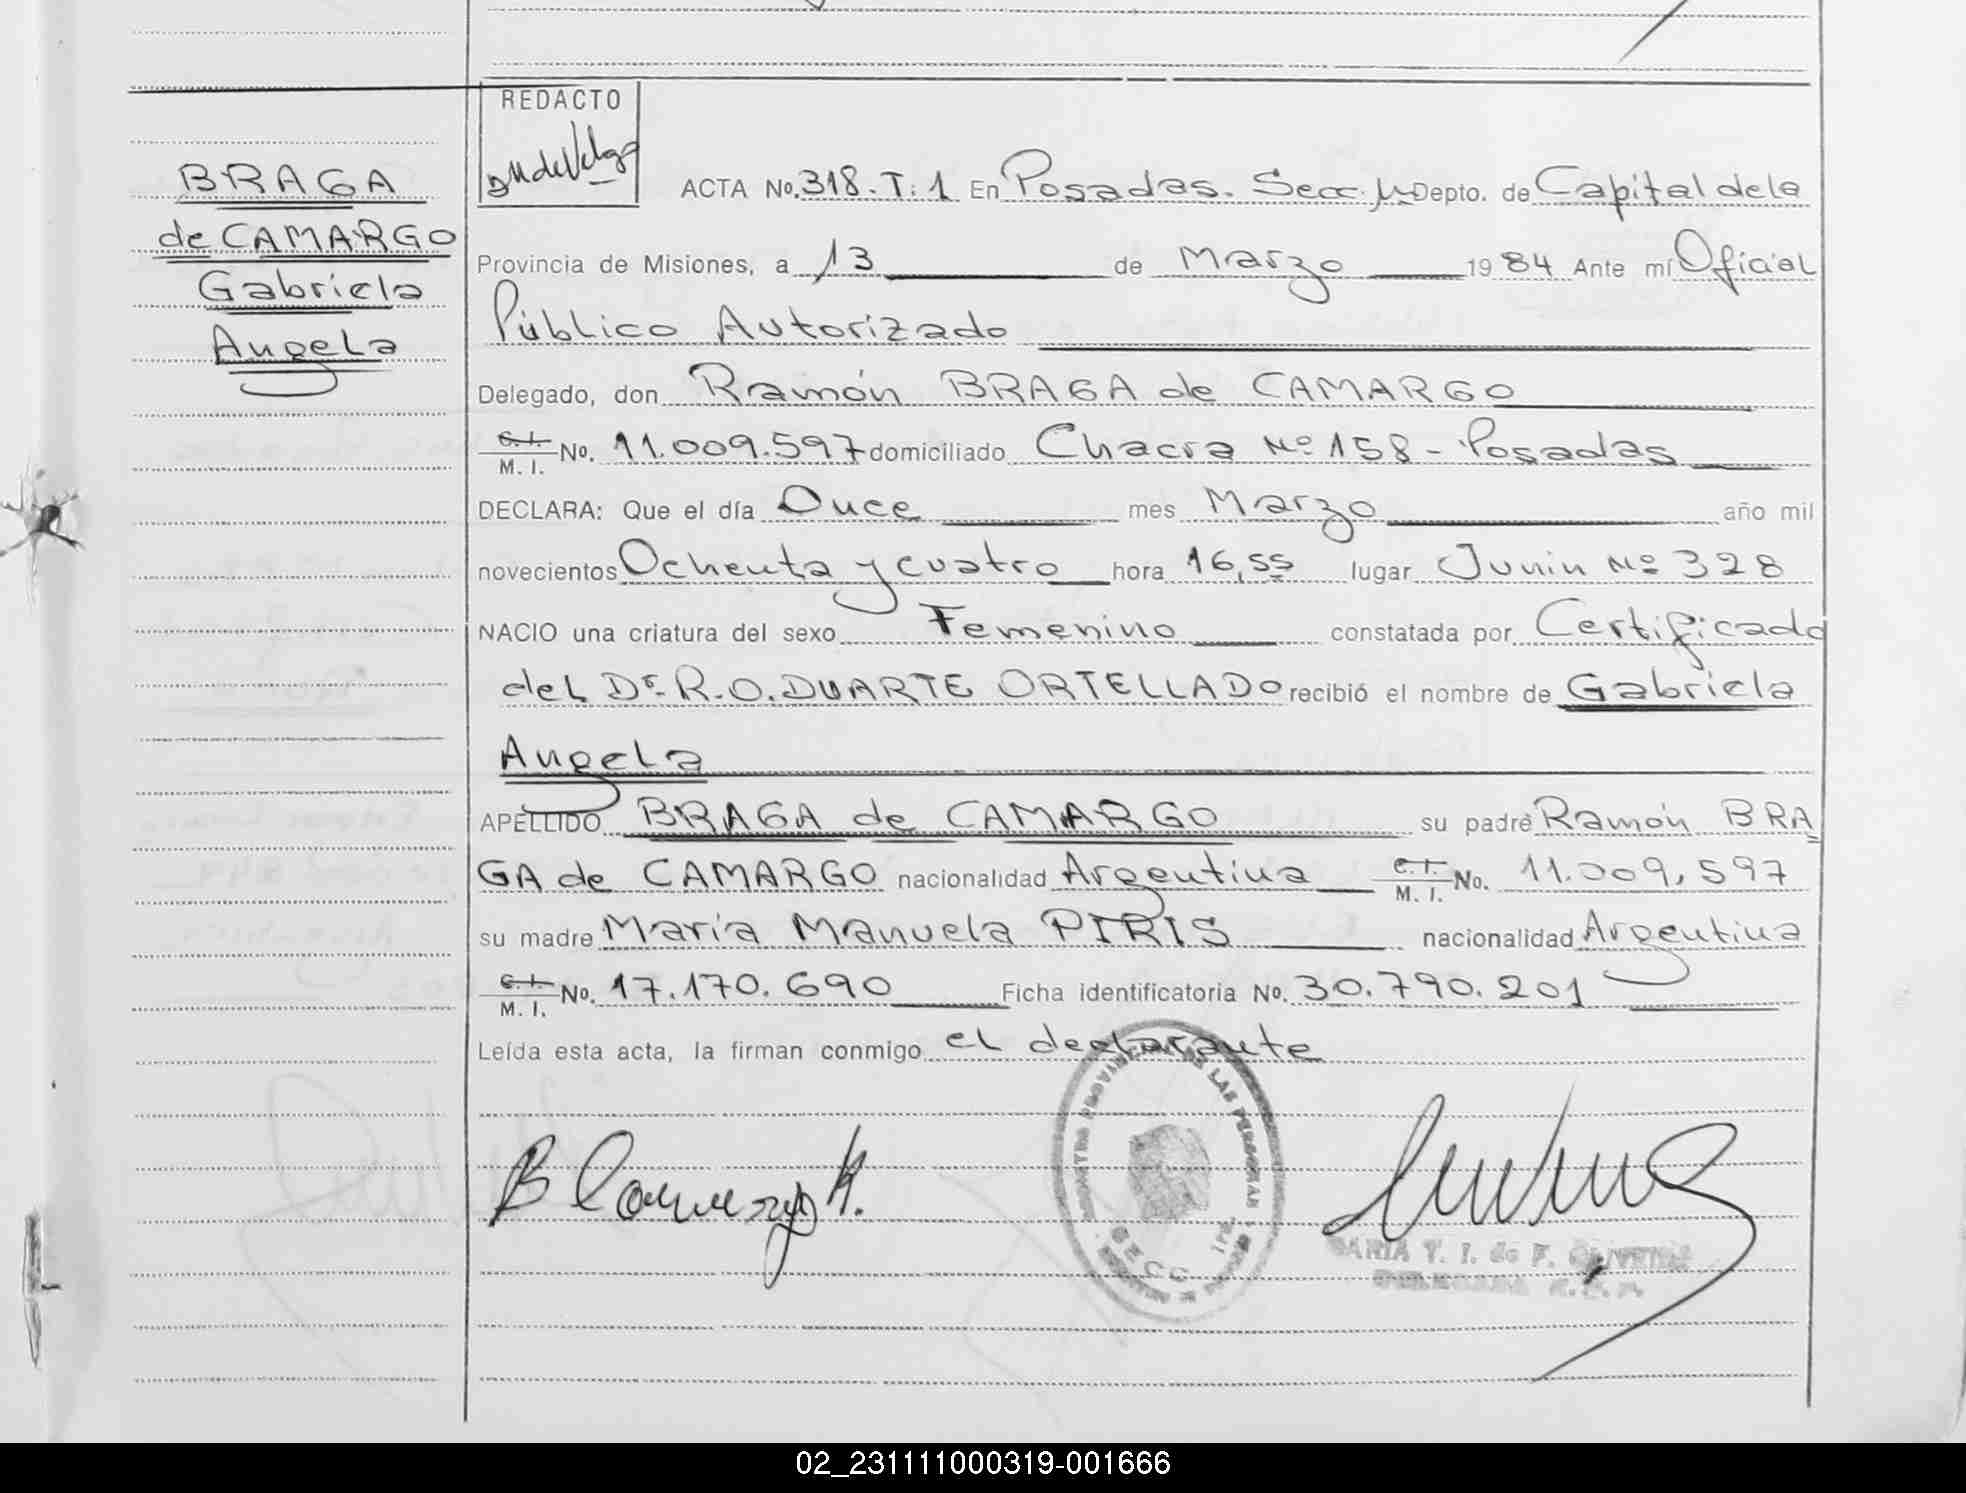 REDACTO
BRAGA
de CAMARGO
Gabriela
Angela
ACTA No. 318. T: 1 En Posadas. Secc. Depto. de Capital de la
Provincia de Misiones, a 13 de Marzo 1984 Ante mí Oficial
Público Autorizado
Delegado, don Ramón BRAGA de CAMARGO
C.I. M. I. No. 11.009.597 domiciliado Chacra Nº 158 - Posadas
DECLARA: Que el día Once mes Marzo año mil
novecientos Ochenta y cuatro hora 16,55 lugar Junin Nº 328
NACIO una criatura del sexo Femenino constatada por Certificado
del Dr. R.O. DUARTE ORTELLADO recibió el nombre de Gabriela
Angela
APELLIDO BRAGA de CAMARGO su padre Ramón BRA
GA de CAMARGO nacionalidad Argentina C.I. M. I. No. 11.009,597
su madre María Manuela PIRIS nacionalidad Argentina
C.I. M. I. No. 17.170.690 Ficha identificatoria No. 30.790.201
Leída esta acta, la firman conmigo el declarante
02_231111000319-001666